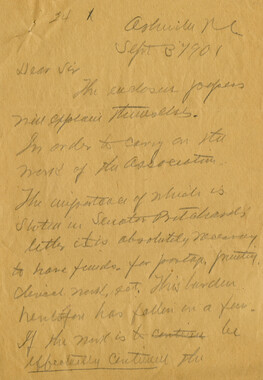 Asheville N.C.
Sept 3 1901
Dear Sir
The enclosed papers
will explain themselves.
In order to carry on the
work of the Association,
The importance of which is
stated in Senator Pritchard's
letter, it is absolutely necessary
to have funds for postage, printing,
clerical work, ect. This burden
heretofore has fallen on a few.
If the work is to be
effectively continued the